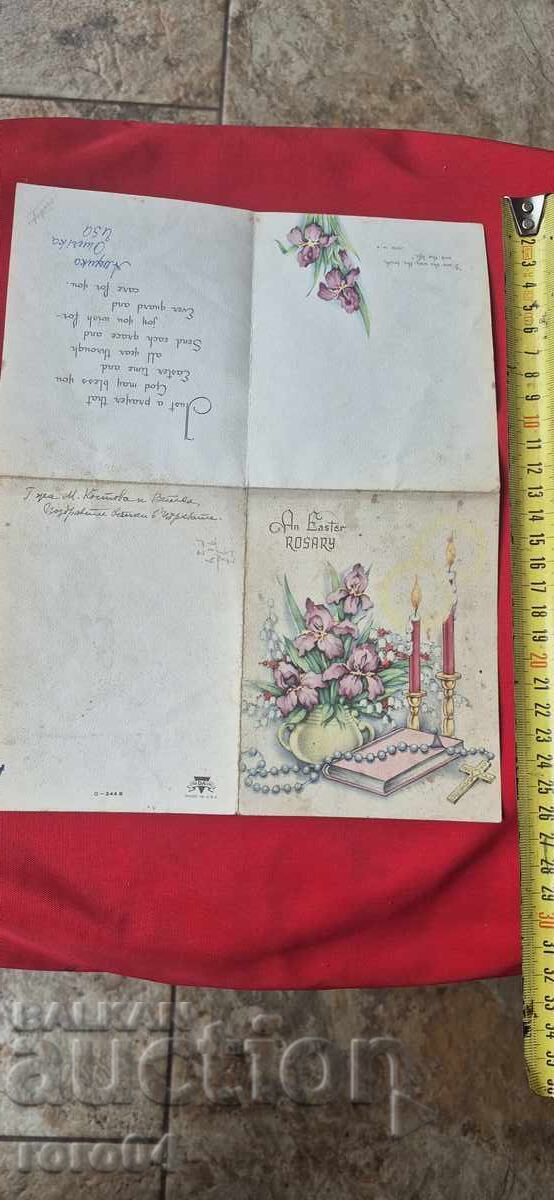 An Easter
ROSARY
Г жа М. Костова и
Поздравете всички в църквата.
G-244 B
MADE IN U.S.A.
Just a prayer that
God may bless you
Easter time and
all year through
Send each grace and
joy you wish for-
Ever guard and
care for you.
Америка
USA
I am the way, the truth,
and the life.
2
3
4
5
6
7
8
9
10
11
12
13
14
15
16
17
18
19
20
21
22
23
24
25
26
27
28
29
30
31
32
33
34
35
36
BALKAN
auction
roro64